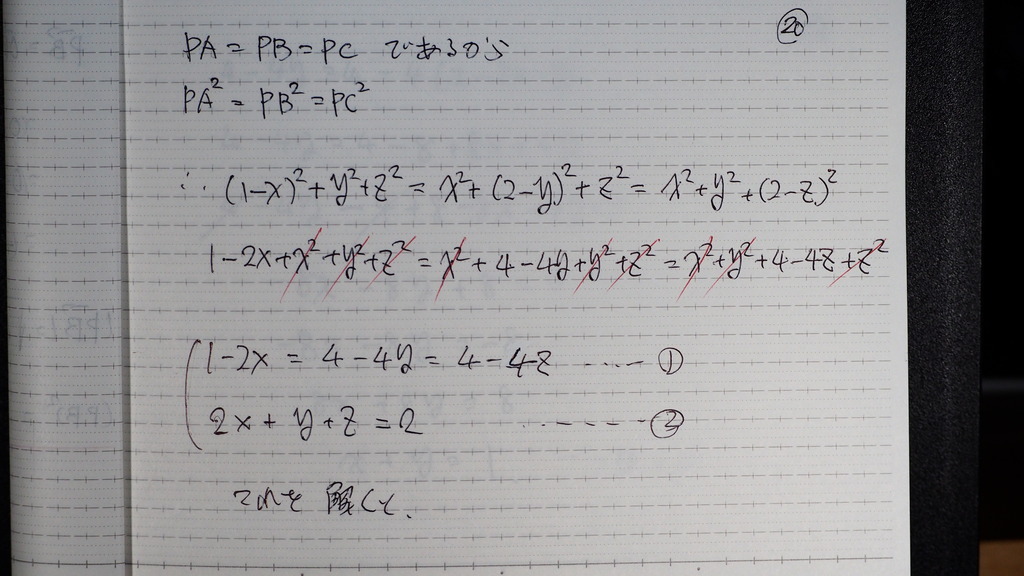 ⑳
PA = PB = PC であるから
PA² = PB² = PC²
∴ (1-x)² + y² + z² = x² + (2-y)² + z² = x² + y² + (2-z)²
1-2x+x²+y²+z² = x²+4-4y+y²+z² = x²+y²+4-4z+z²
1-2x = 4-4y = 4-4z ‥‥‥ ①
2x + y + z = 2 ‥‥‥‥ ②
これを解くと.